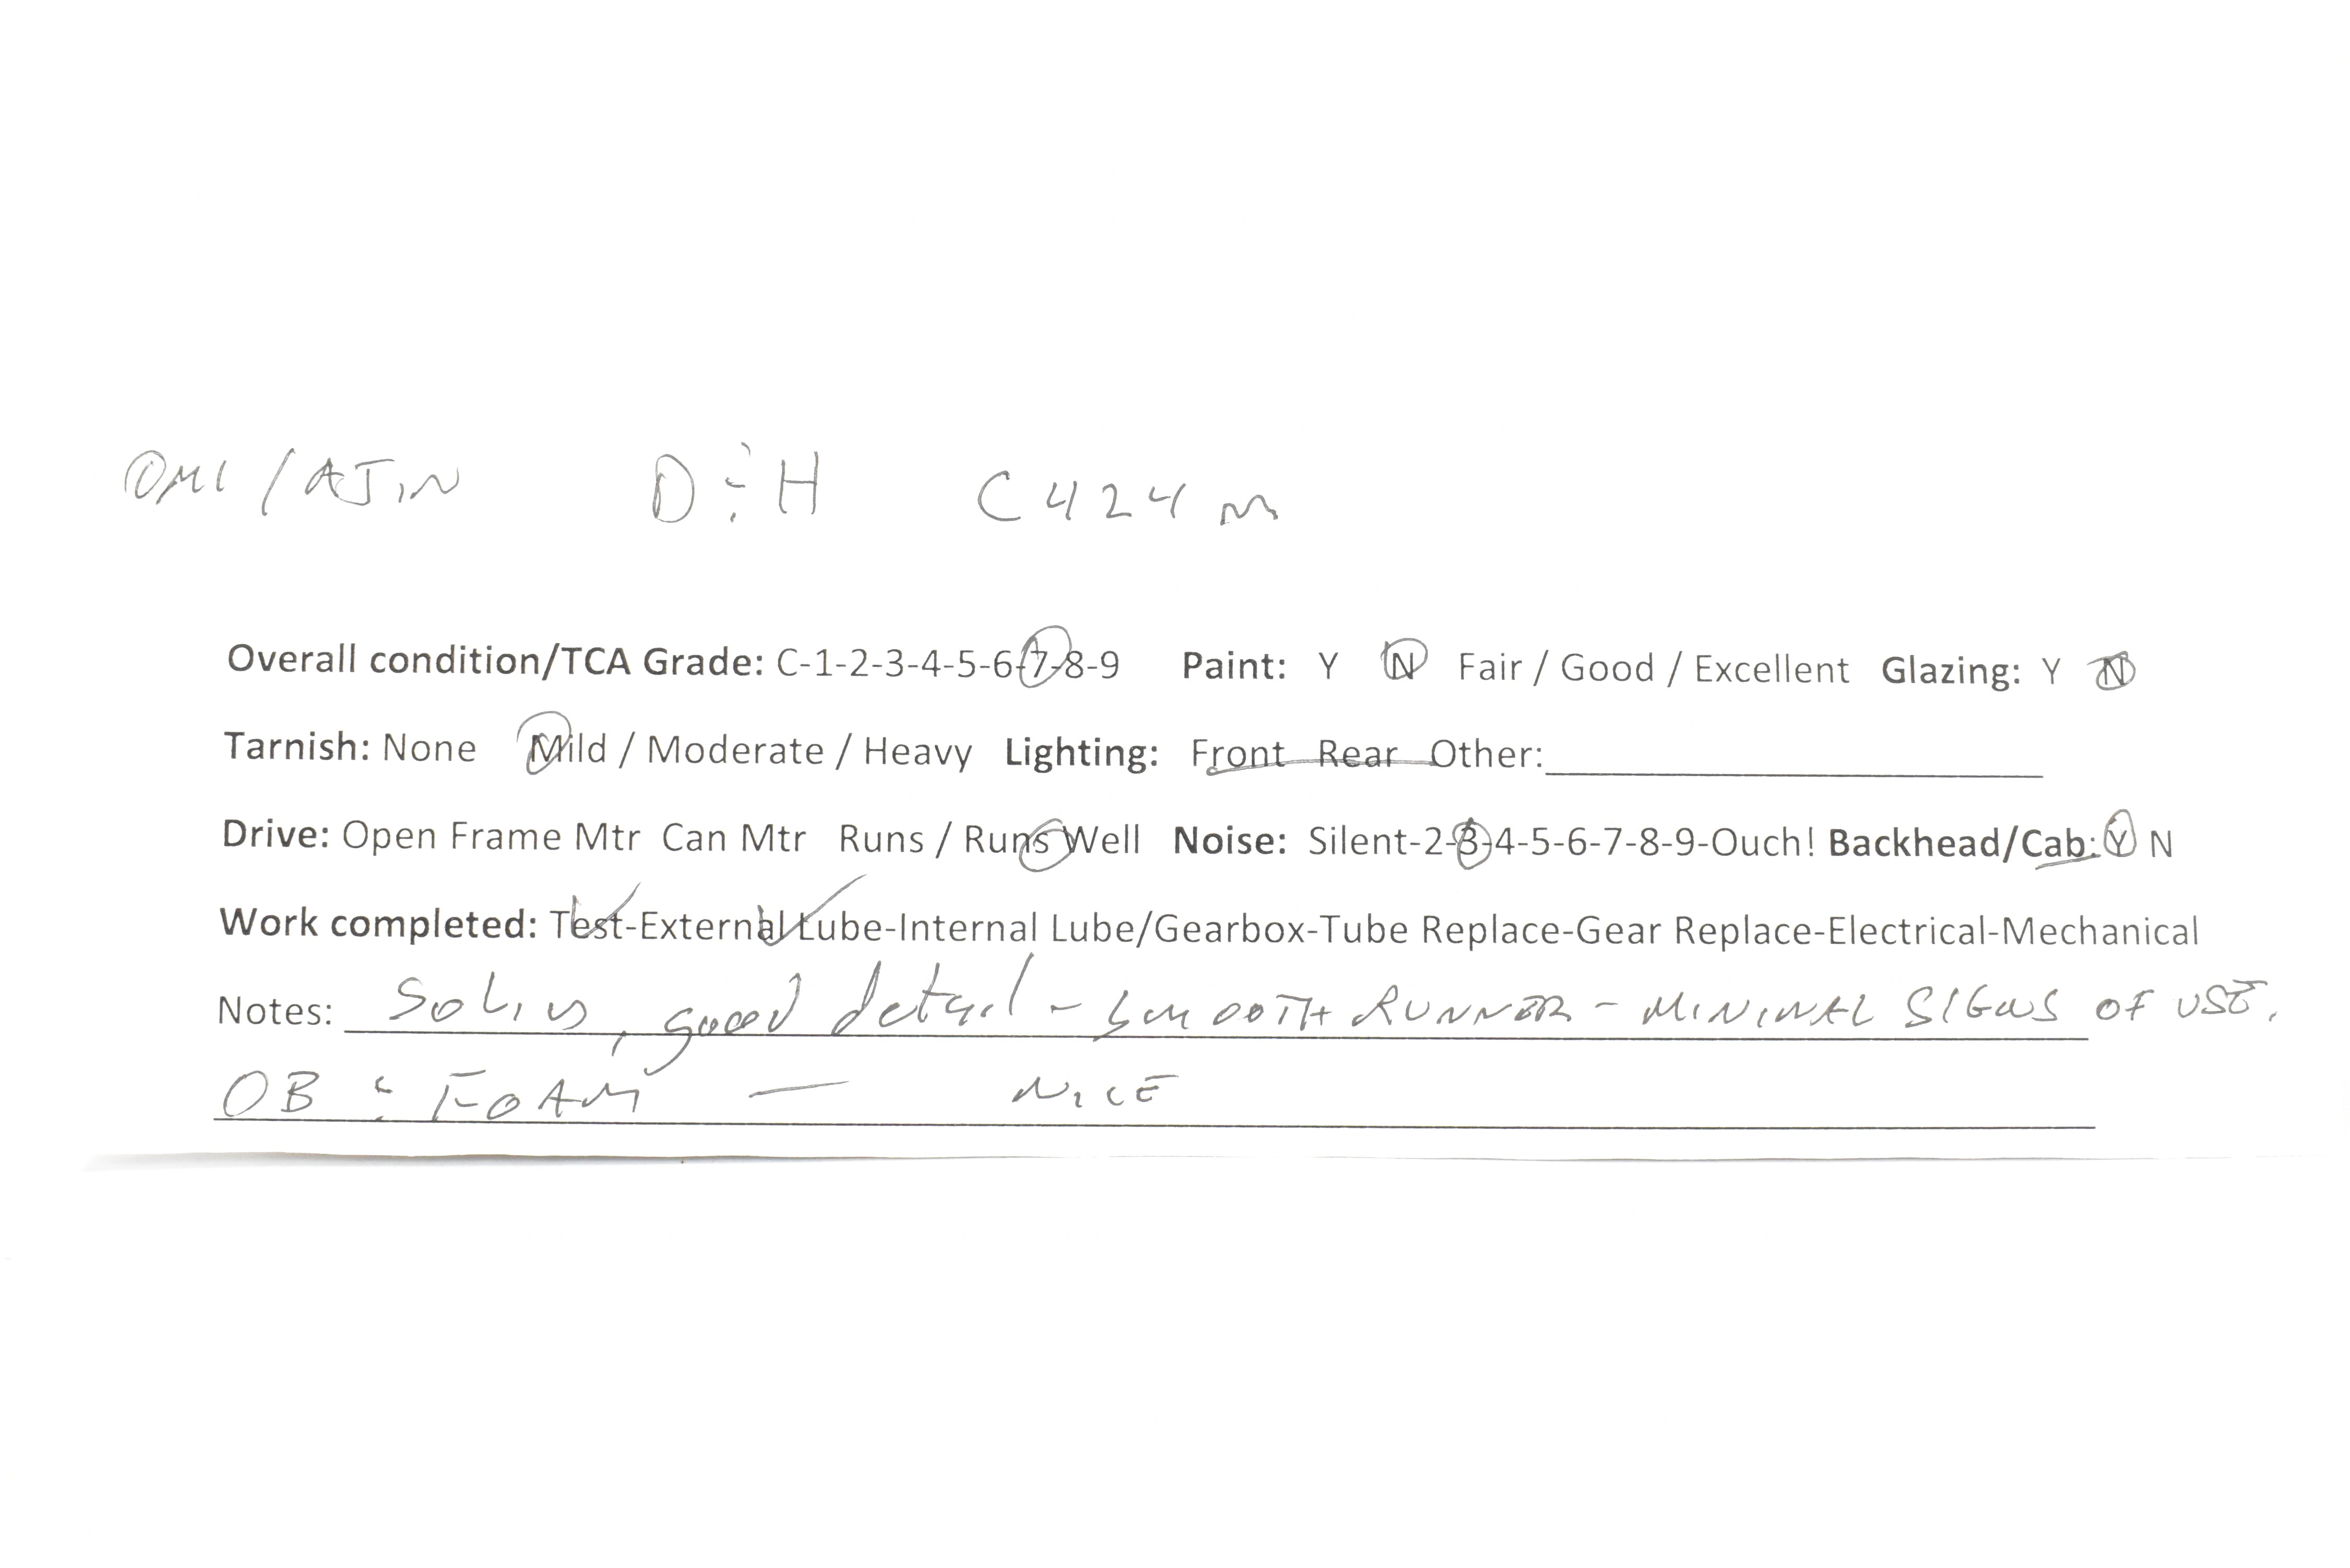 OMI / AJIN D & H C424m
Overall condition/TCA Grade: C-1-2-3-4-5-6-7-8-9 Paint: Y N Fair / Good / Excellent Glazing: Y N
Tarnish: None Mild / Moderate / Heavy Lighting: Front Rear Other:
Drive: Open Frame Mtr Can Mtr Runs / Runs Well Noise: Silent-2-3-4-5-6-7-8-9-Ouch! Backhead/Cab: Y N
Work completed: Test-External Lube-Internal Lube/Gearbox-Tube Replace-Gear Replace-Electrical-Mechanical
Notes: SOLID, good detail - SMOOTH RUNNER - MINIMAL SIGNS OF USE.
OB & FOAM — NICE